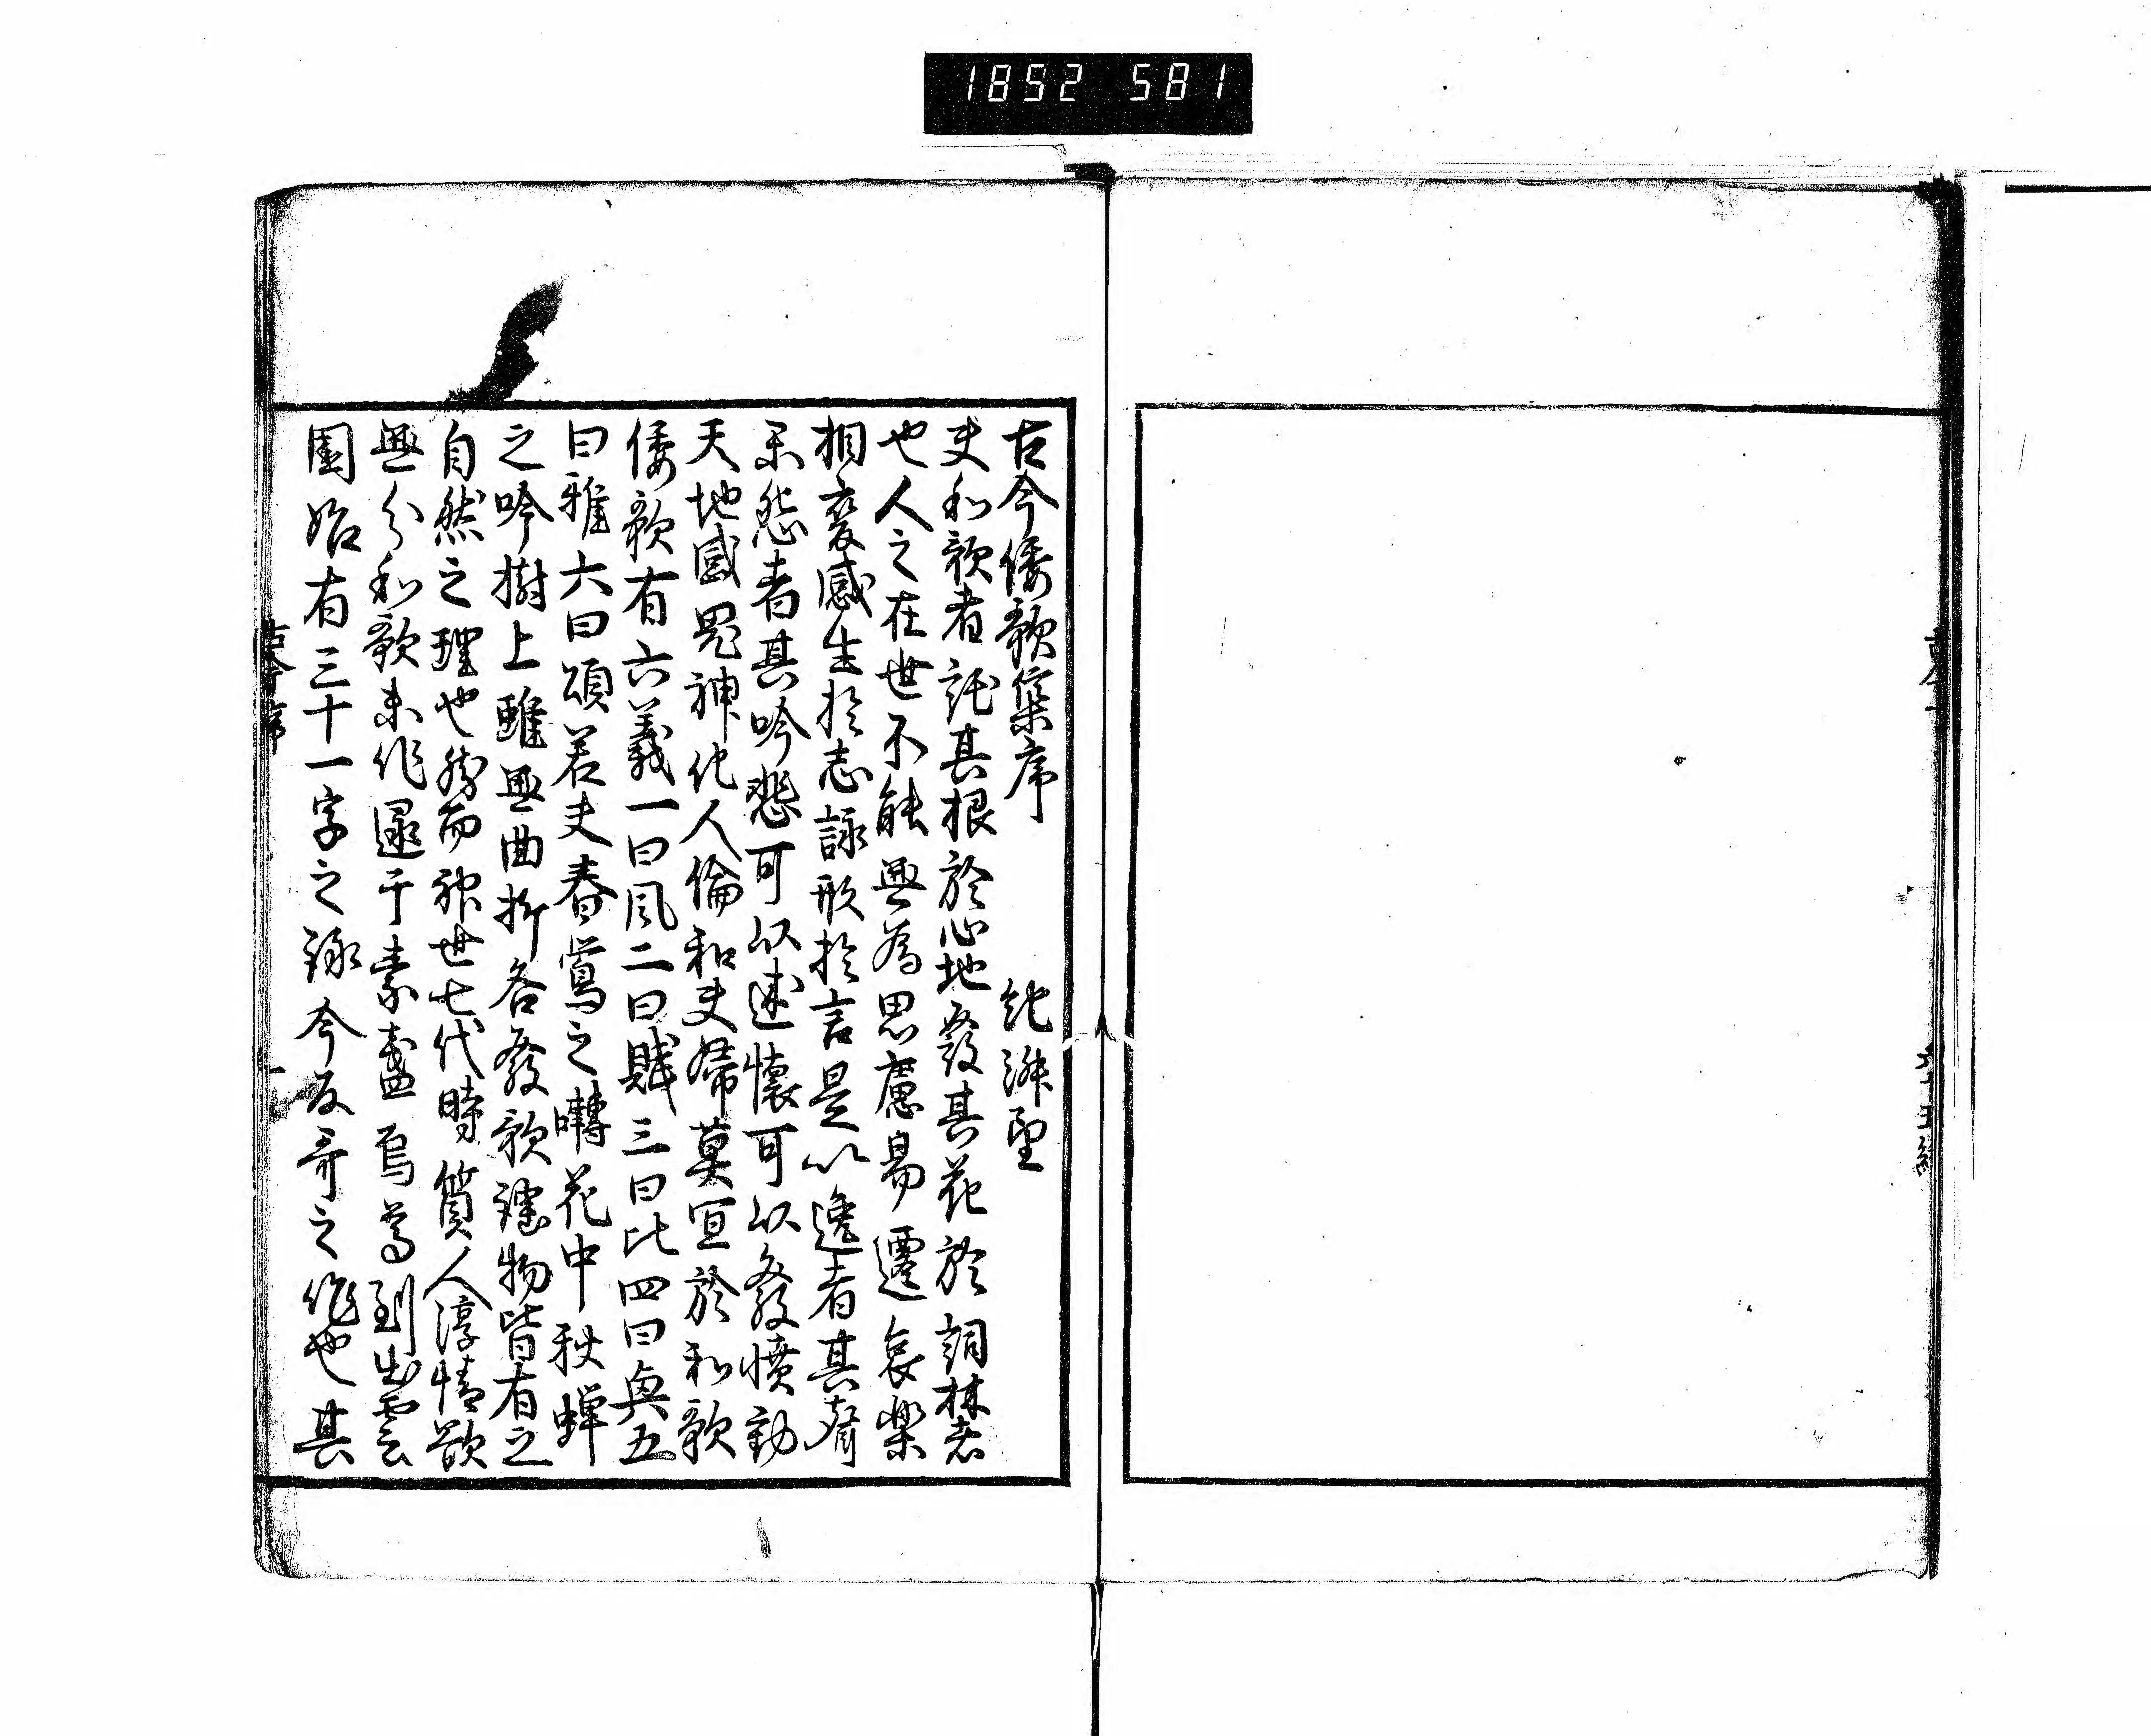 1852 581
古今倭歌集序 紀淑望
夫和歌者託其根於心地發其花於詞林者
也人之在世不能無為思慮易遷哀樂
相変感生於志詠形於言是以逸者其聲
楽怨者其吟悲可以述懐可以發憤動
天地感鬼神化人倫和夫婦莫宜於和歌
倭歌有六義一曰風二曰賦三曰比四曰興五
曰雅六曰頌若夫春鶯之囀花中秋蟬
之吟樹上雖無曲折各發歌謠物皆有之
自然之理也然而神世七代時質人淳情欲
無分和歌未作逮于素盞烏尊到出雲
國始有三十一字之詠今反哥之作也其
古今序
一